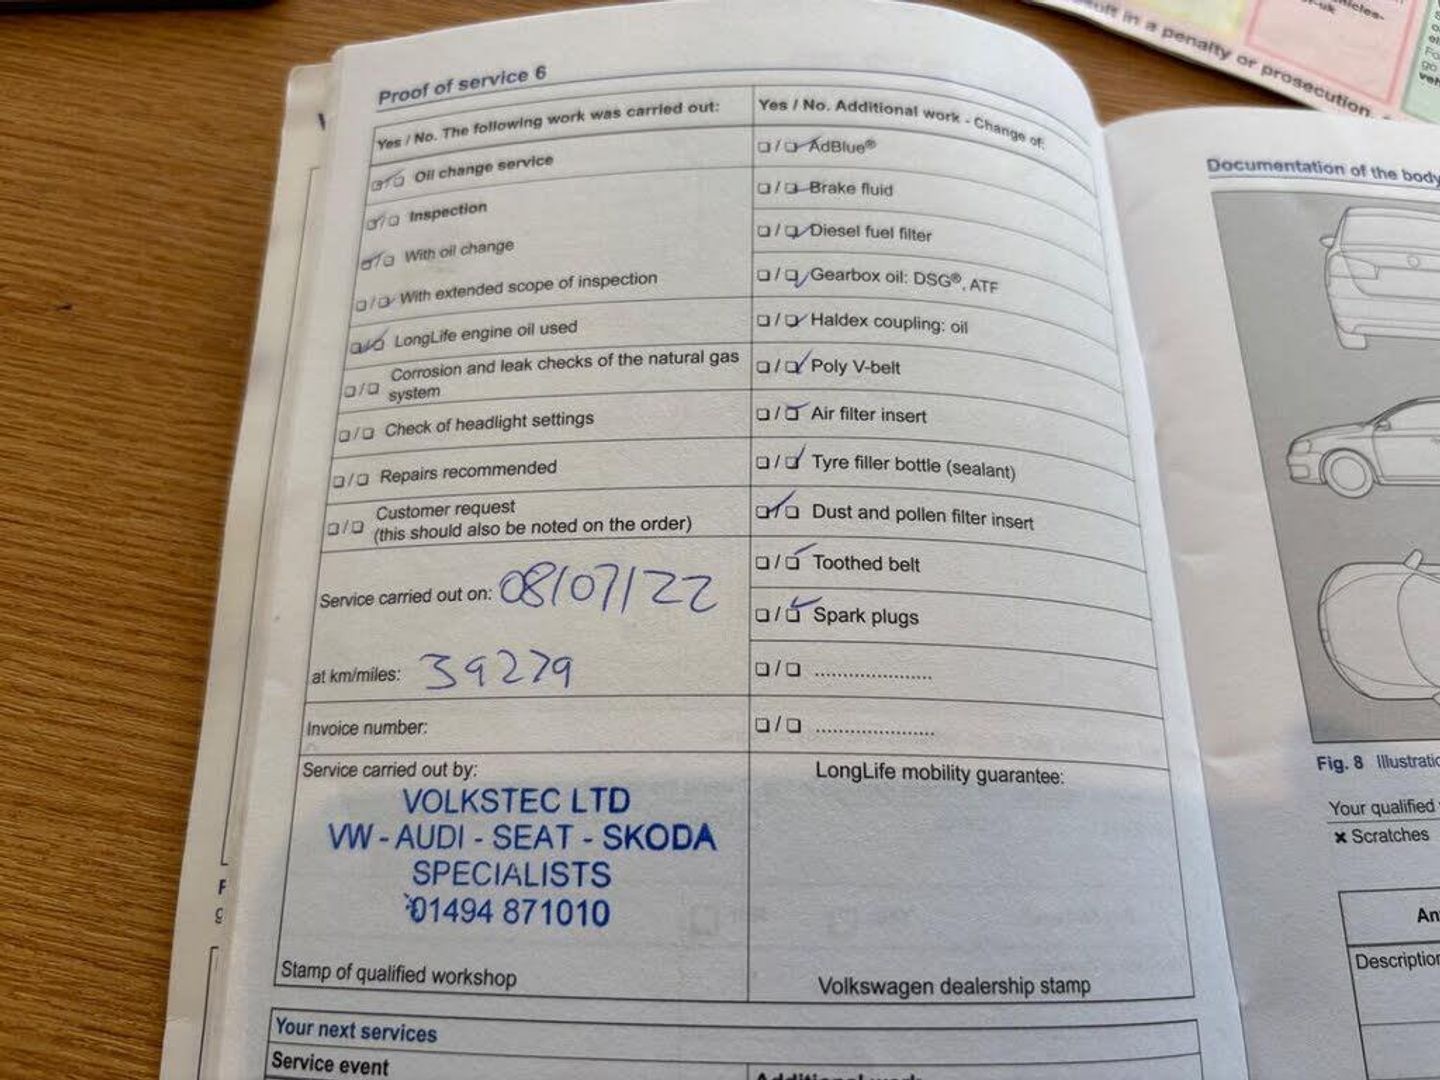 Proof of service 6
Yes / No. The following work was carried out:
❑/❑ Oil change service
❑/❑ Inspection
❑/❑ With oil change
❑/❑ With extended scope of inspection
❑/❑ LongLife engine oil used
❑/❑ Corrosion and leak checks of the natural gas
system
❑/❑ Check of headlight settings
❑/❑ Repairs recommended
❑/❑ Customer request
(this should also be noted on the order)
Service carried out on: 08/07/22
at km/miles: 39279
Invoice number:
Service carried out by:
VOLKSTEC LTD
VW - AUDI - SEAT - SKODA
SPECIALISTS
01494 871010
Stamp of qualified workshop
Yes / No. Additional work - Change of:
❑/❑ AdBlue®
❑/❑ Brake fluid
❑/❑ Diesel fuel filter
❑/❑ Gearbox oil: DSG®, ATF
❑/❑ Haldex coupling: oil
❑/❑ Poly V-belt
❑/❑ Air filter insert
❑/❑ Tyre filler bottle (sealant)
❑/❑ Dust and pollen filter insert
❑/❑ Toothed belt
❑/❑ Spark plugs
❑/❑ .....................
❑/❑ .....................
LongLife mobility guarantee:
Volkswagen dealership stamp
Your next services
Service event
Additional work
Documentation of the body
Fig. 8 Illustratio
Your qualified
× Scratches
An
Description
sult in a penalty or prosecution.